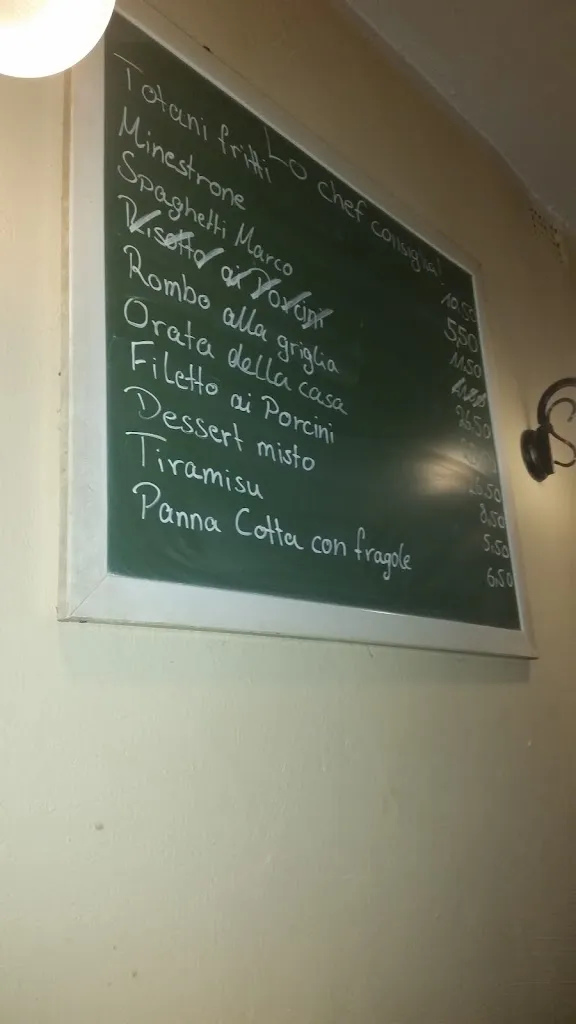 Lo chef consiglia!
Totani fritti 10,50
Minestrone 5,50
Spaghetti Marco 11,50
Risotto ai Porcini
Rombo alla griglia 26,50
Orata della casa
Filetto ai Porcini 26,50
Dessert misto 8,50
Tiramisu 5,50
Panna Cotta con fragole 6,50